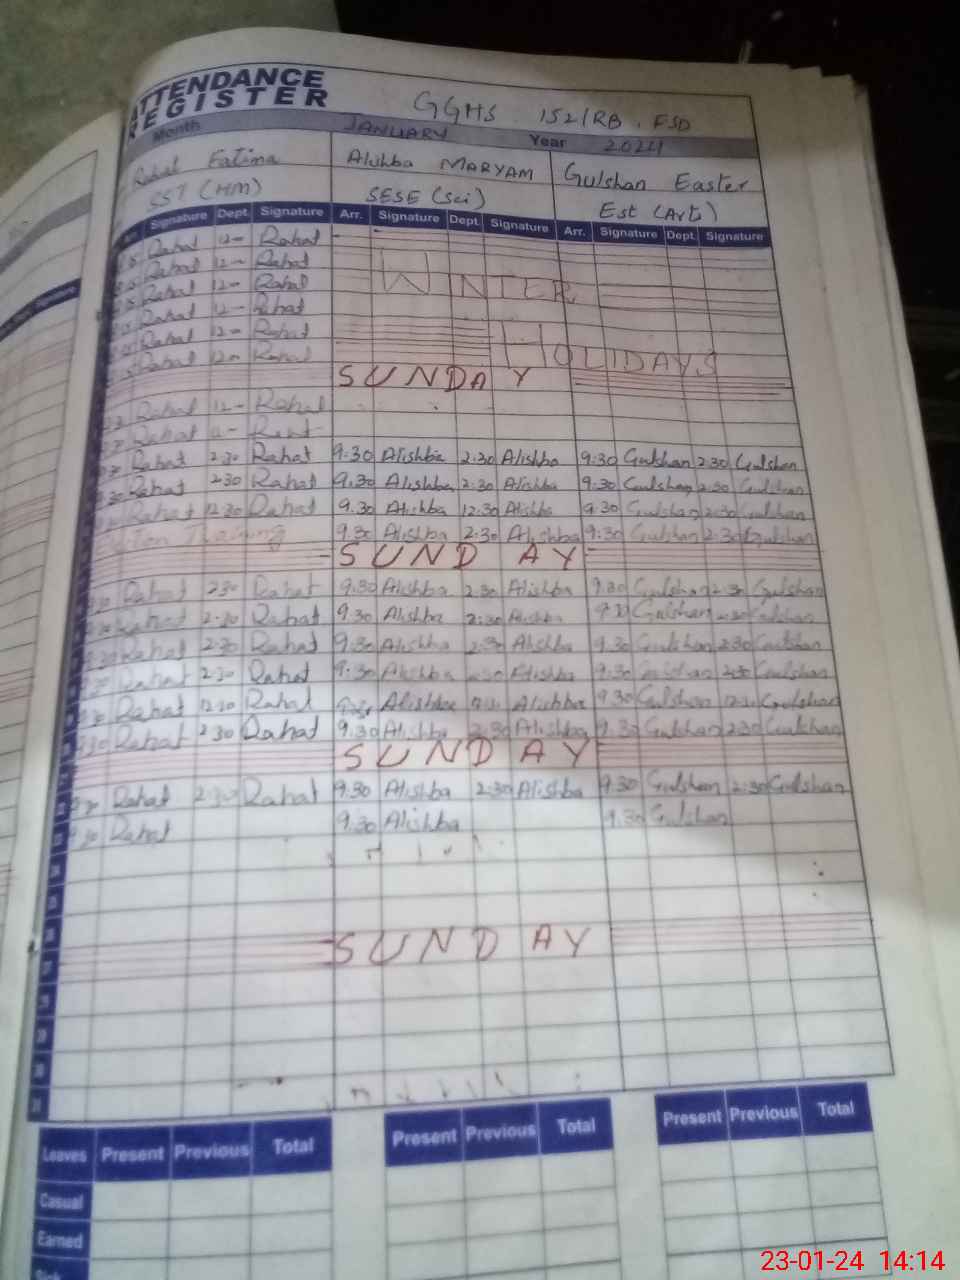 ATTENDANCE
REGISTER
GGHS 152/RB. FSD
Month JANUARY Year 2024
Rahat Fatima Alishba MARYAM Gulshan Easter
SST (HM) SESE (Sci) Est (Art)
Signature Dept. Signature Arr. Signature Dept Signature Arr. Signature Dept. Signature
Rahat 12- Rahat
Rahat 12- Rahat WINTER
Rahat 12- Rahat
Rahat 12- Rahat
Rahat 12- Rahat HOLIDAYS
Rahat 12- Rahat
SUNDAY
Rahat 12- Rahat
Rahat
Rahat 2:30 Rahat 9:30 Alishba 2:30 Alishba 9:30 Gulshan 2:30 Gulshan
Rahat 2:30 Rahat 9:30 Alishba 2:30 Alishba 9:30 Gulshan 2:30 Gulshan
Rahat 12:30 Rahat 9:30 Alishba 12:30 Alishba 9:30 Gulshan Gulshan
Training 9:30 Alishba 2:30 Alishba 9:30 Gulshan 2:30 Gulshan
SUNDAY
Rahat 230 Rahat 9:30 Alishba 2:30 Alishba 9:30 Gulshan 2:30 Gulshan
Rahat 2:30 Rahat 9:30 Alishba 2:30 Alishba 9:30 Gulshan 2:30 Gulshan
Rahat 2:30 Rahat 9:30 Alishba 2:30 Alishba 9:30 Gulshan 2:30 Gulshan
Rahat 2:30 Rahat 9:30 Alishba 2:30 Alishba 9:30 Gulshan 2:30 Gulshan
Rahat 12:30 Rahat Alishba Alishba 9:30 Gulshan Gulshan
Rahat 2:30 Rahat 9:30 Alishba 2:30 Alishba 9:30 Gulshan 2:30 Gulshan
SUNDAY
Rahat 2:30 Rahat 9:30 Alishba 2:30 Alishba 9:30 Gulshan 2:30 Gulshan
Rahat 9:30 Alishba 9:30 Gulshan
24
25
SUNDAY
31
Leaves Present Previous Total Present Previous Total Present Previous Total
Casual
Earned
23-01-24 14:14